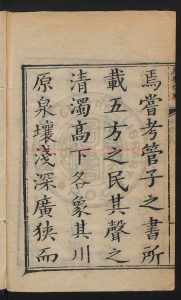 焉嘗考管子之書所
載五方之民其聲之
清濁高下各象其川
原泉壤淺深廣狹而